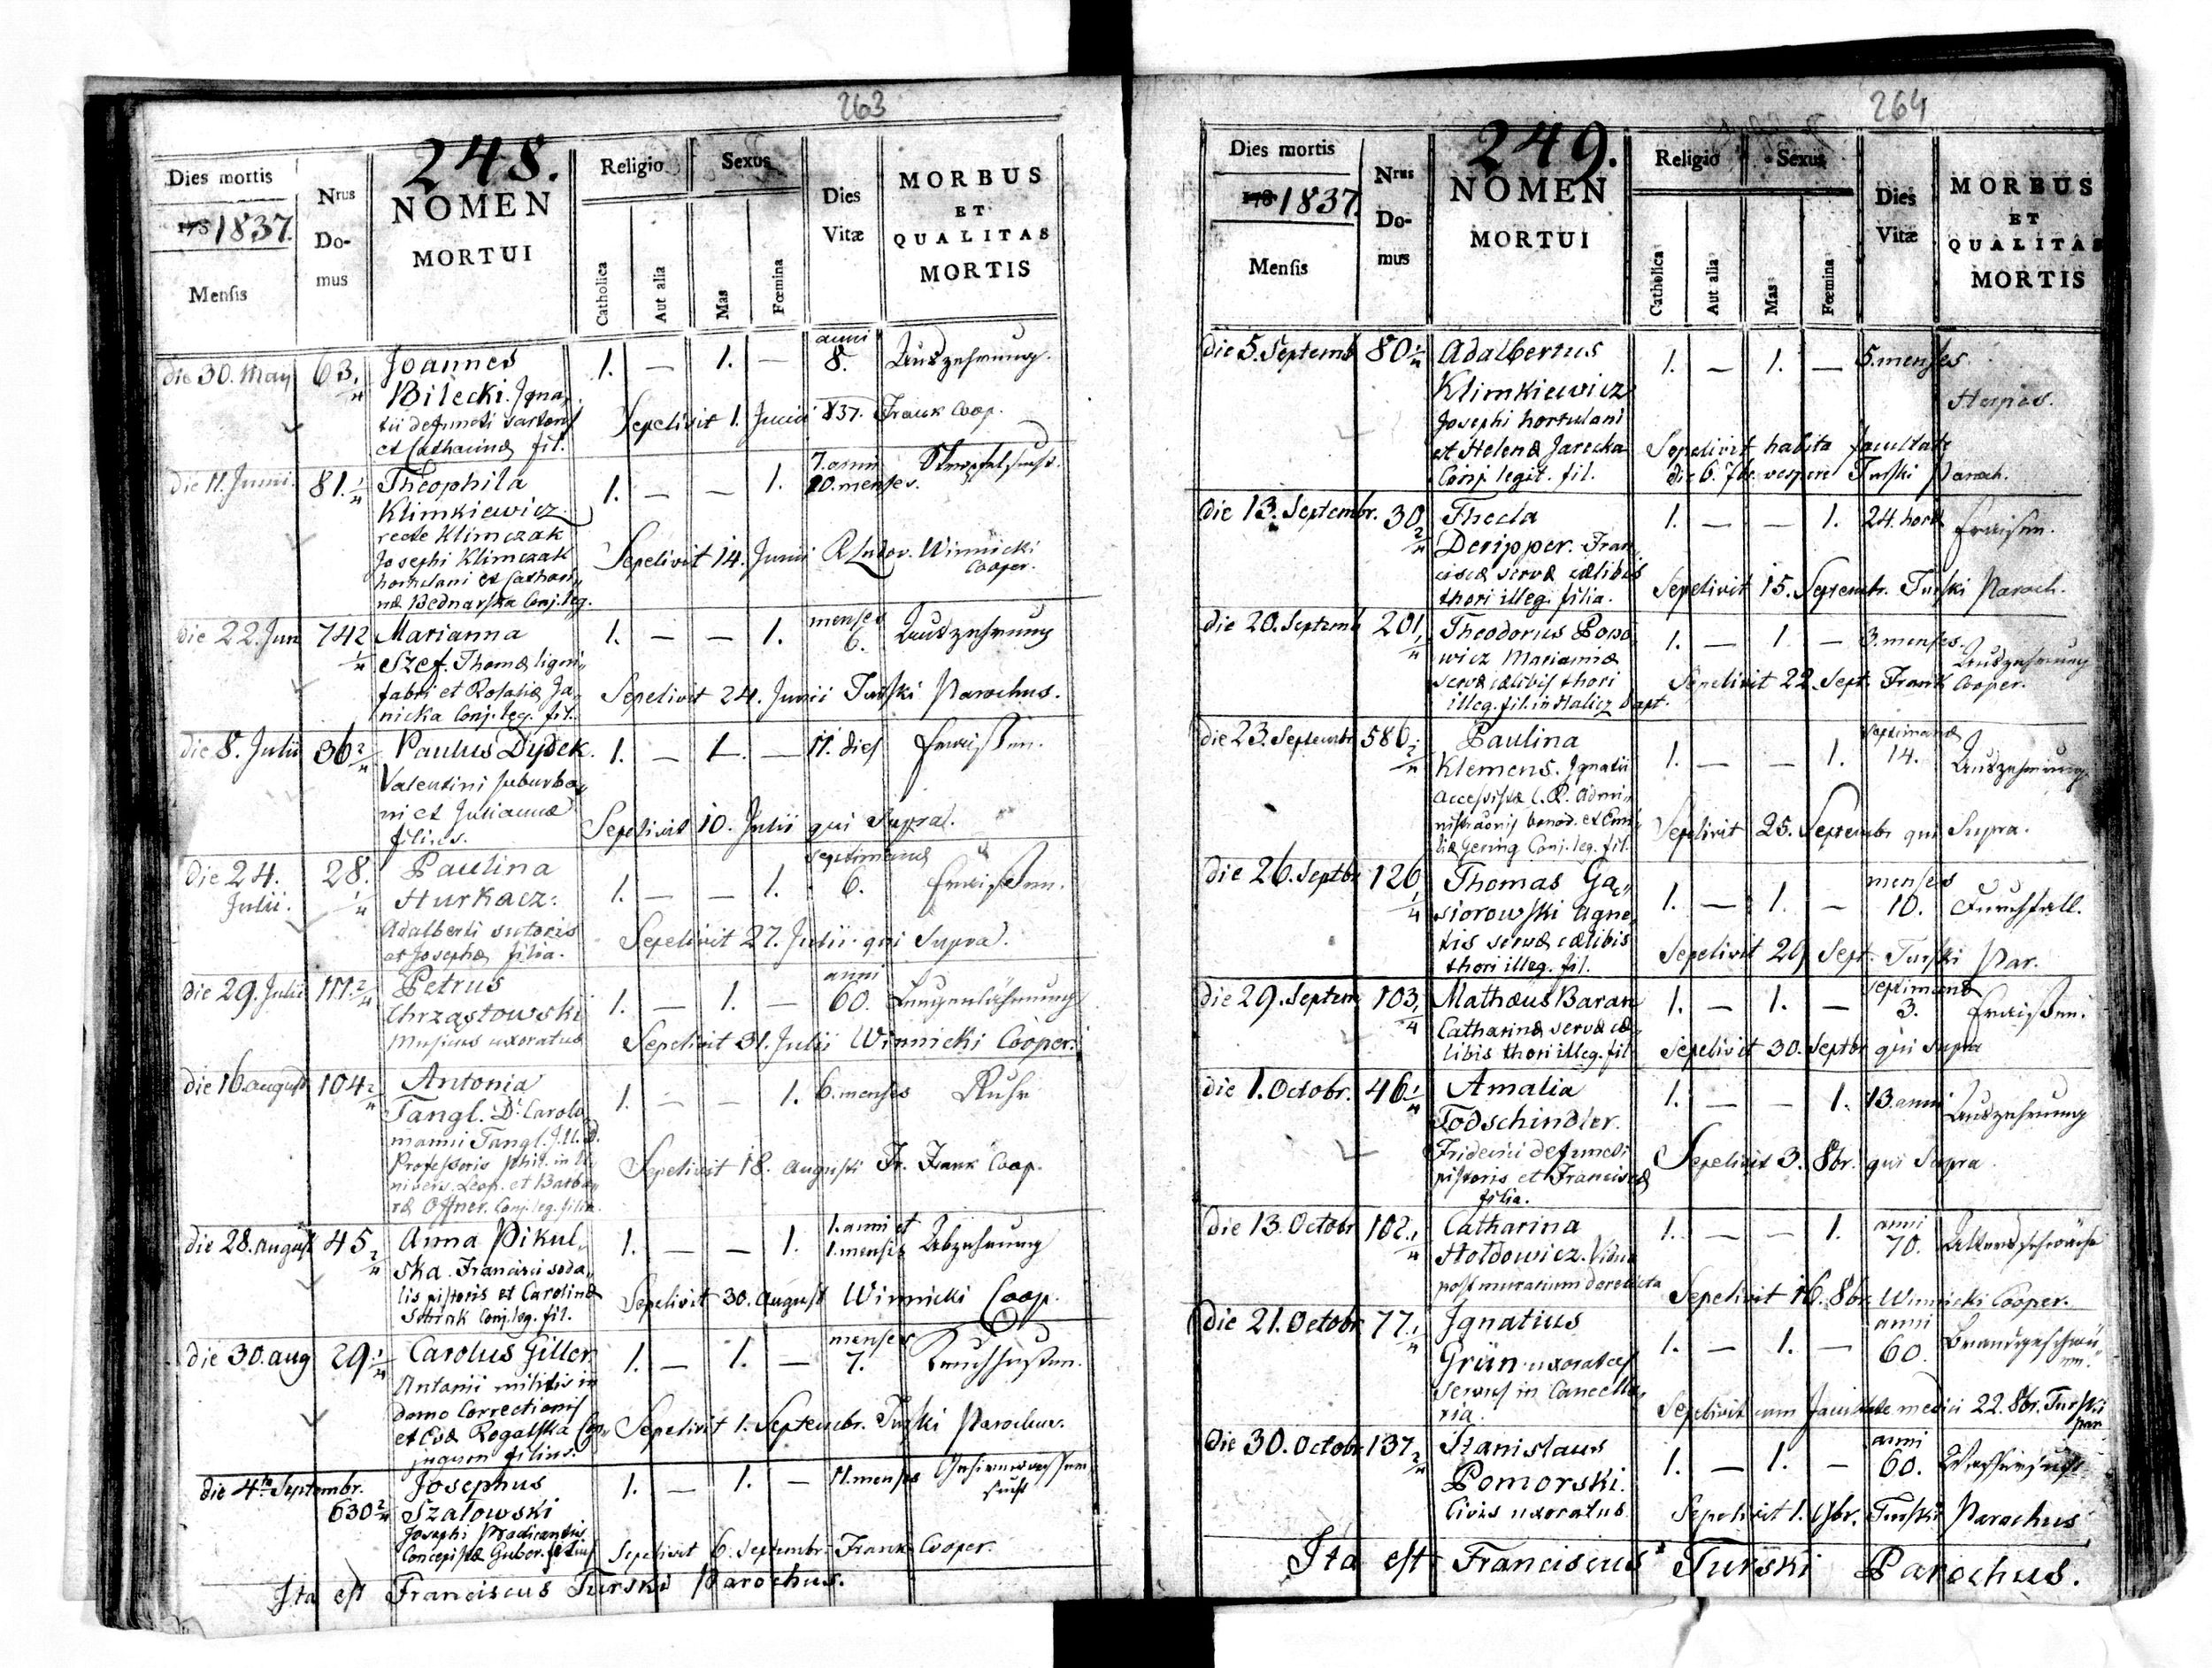 263
248.
Dies mortis
1837.
Mensis
Nrus
Do-
mus
NOMEN
MORTUI
Religio
Catholica
Aut alia
Sexus
Mas
Fœmina
Dies
Vitæ
MORBUS
ET
QUALITAS
MORTIS
die 30. May 63. 1/4 Joannes 1. — 1. — anni 8. Auszehrung.
Bilecki. Igna„
tii defuncti sartoris
et Catharinæ fil.
Sepelivit 1. Junii 837. Frank Coop.
die 11. Junii 81. 1/4 Theophila 1. — — 1. 7. anni 10. menses.
Klimkiewicz
recte Klimczak
Josephi Klimczak
hortulani et Cathari„
næ Bednarska Conj. leg.
Sepelivit 14. Junii Winnicki
Cooper.
die 22. Jun 742 1/4 Marianna 1. — — 1. menses 6. Auszehrung
Szef. Thomæ ligni„
fabri et Rosaliæ Ja„
nicka Conj. leg. fil.
Sepelivit 24. Junii Turski Parochus.
die 8. Julii 36 2/4 Paulus Dydek. 1. — 1. — 11. dies Fraißen.
Valentini suburba„
ni et Juliannæ
filius.
Sepelivit 10. Julii qui Supra.
die 24. Julii. 28. 1/4 Paulina 1. — — 1. septimanæ 6. Fraißen.
Hurkacz.
Adalberti sutoris
et Josephæ filia.
Sepelivit 27. Julii qui Supra.
die 29. Julii 111. 2/4 Petrus 1. — 1. — anni 60. Lungenlähmung
Chrząstowski
Musicus uxoratus
Sepelivit 31. Julii Winnicki Cooper.
die 16 august 104 2/4 Antonia 1. — — 1. 6. menses Ruhr
Tangl. D: Carolo
manni Tangl. J.U.D.
Professoris phil. in U„
nivers. Leop. et Barba„
ræ Offner. Conj. leg. filia.
Sepelivit 18. augusti Fr. Frank Coop.
die 28. august 45 2/4 Anna Pikul„ 1. — — 1. 1. anni et 1. mensis Abzehrung
ska. Francisci soda„
lis pistoris et Carolinæ
Conj. leg. fil.
Sepelivit 30. August Winnicki Coop.
die 30. aug 29 1/4 Carolus Giller 1. — 1. — menses 7. Keuchhusten.
Antonii militis in
domo Correctionis
et Evæ Rogalska Con„
jugum filius.
Sepelivit 1. Septembr. Turski Parochus.
die 4ta Septembr. 630 2/4 Josephus 1. — 1. — 11. menses Gehirnwasser
sucht
Szatowski
Josephi Practicantis
Concepistæ Guber. filius
Sepelivit 6. Septembr. Frank Cooper.
Ita est Franciscus Turski Parochus.
264
249.
Dies mortis
1837.
Mensis
Nrus
Do-
mus
NOMEN
MORTUI
Religio
Catholica
Aut alia
Sexus
Mas
Fœmina
Dies
Vitæ
MORBUS
ET
QUALITAS
MORTIS
die 5. Septemb 80 1/4 Adalbertus 1. — 1. — 5. menses
Klimkiewicz Herpes.
Josephi hortulani
et Helenæ Jarecka
Conj. legit. fil.
Sepelivit habita facultate
die 6. 7br. vespere Turski Paroch.
die 13. Septembr. 30 2/4 Thecla 1. — — 1. 24. horæ Fraisen.
Deripper. Fran
ciscæ servæ cælibis
thori illeg. filia.
Sepelivit 15. Septembr. Turski Paroch.
die 20. Septemb 201 1/4 Theodorus Popo 1. — 1 — 3. menses. Auszehrung
wicz Mariannæ
servæ cælibis thori
illeg. fil. in Halicz bapt.
Sepelivit 22. Sept. Frank Cooper.
die 23. Septembr 586 1/4 Paulina 1. — — 1. septimanæ 14. Auszehrung
Klemens. Ignatii
Accessistæ C.R. Admi„
nistraonis bonor. et Emi„
liæ Gering Conj. leg. fil.
Sepelivit 25. Septembr qui Supra.
die 26. Septbr 126 1/4 Thomas Gą„ 1. — 1. — menses 10. Durchfall.
siorowski Agne„
tis servæ cælibis
thori illeg. fil.
Sepelivit 29 Sept. Turski Par.
die 29. Septem 103, 1/4 Mathæus Baran 1. — 1. — septimanæ 3. Fraißen.
Catharinæ servæ cæ
libis thori illeg. fil
Sepelivit 30. Septbr qui Supra
die 1. Octobr. 46 1/4 Amalia 1. — — 1. 13. anni Auszehrung
Todschindler.
Friderici defuncti
pistoris et Franciscæ
filia.
Sepelivit 3. 8br. qui Supra
die 13. Octobr 102. 1/4 Catharina 1. — — 1. anni 70. Altersschwäche
Hołdowicz. Vidua
post murarium derelicta
Sepelivit 16. 8br. Winnicki Cooper.
die 21. Octobr 77. 1/4 Ignatius 1. — 1. — anni 60.
Grün uxoratus
Servus in Cancella„
ria.
Sepelivit cum facultate medici 22. 8br. Turski
par
die 30. Octobr 137 2/4 Stanislaus 1. — 1. — anni 60. Wassersucht
Pomorski.
Civis uxoratus
Sepelivit 1. 9br. Turski Parochus
Ita est Franciscus Turski Parochus.